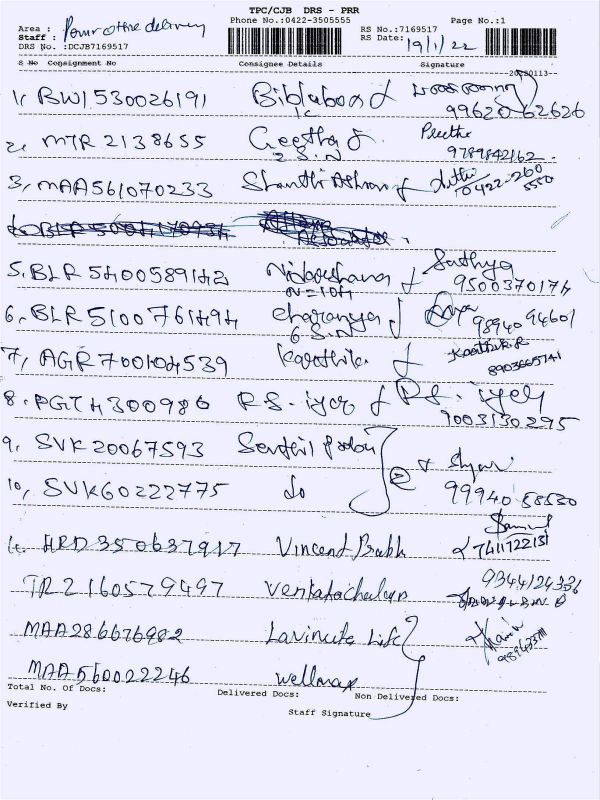 TPC/CJB DRS - PRR
Area : Power office delivery Phone No.:0422-3505555 Page No.:1
Staff : RS No.:7169517
DRS No. :DCJB7169517 RS Date: 19/1/22
S No Consignment No Consignee Details Signature
20220113
1, BW1530026191
99620 62626
2, MTR 2138655 Geetha J. Preetha
2 S.N 9789842162
3, MAA561070233 Shanthi
0422-260 5550
5, BLR 5400589142 Sathya
N=104 9500370174
6, BLR 5100761494 Charanya
6 S.N 98940 94601
7, AGR700104539 Karthika Karthik.R
8903665741
8. PGT4300986 R.S. iyer R.S. iyer
9003130295
9, SVK20067593 Senthil
10, SVK60222775 do 2 Shyam
99940 58530
HRD350637917 Vincent Bubh 7411722131
TR2160579497 Venkatachalam 9344124336
MAA286676982 Lavinute Life
MAA560022246 Wellmax
Total No. Of Docs: Delivered Docs: Non Delivered Docs:
Verified By Staff Signature